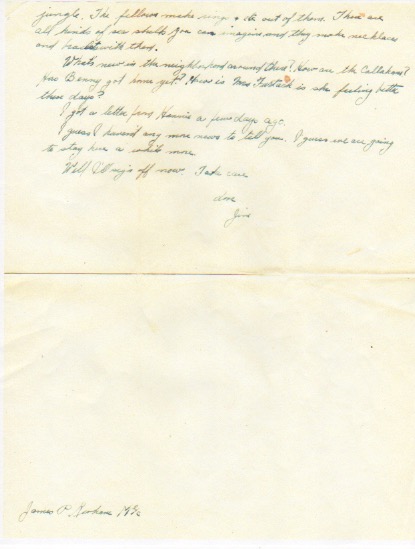 jungle. The fellows make rings & etc out of them. There are
all kinds of sea shells you can imagine and they make necklaces
and with them.
What's new in the neighborhood around there? How are the Callahans?
Has Benny got home yet? How is Mrs. is she feeling better
these days?
I got a letter from a few days ago.
I guess I haven't any more news to tell you. I guess we are going
to stay here a while more
Well I'll sign off now. Take care
Love
Jim
James P.